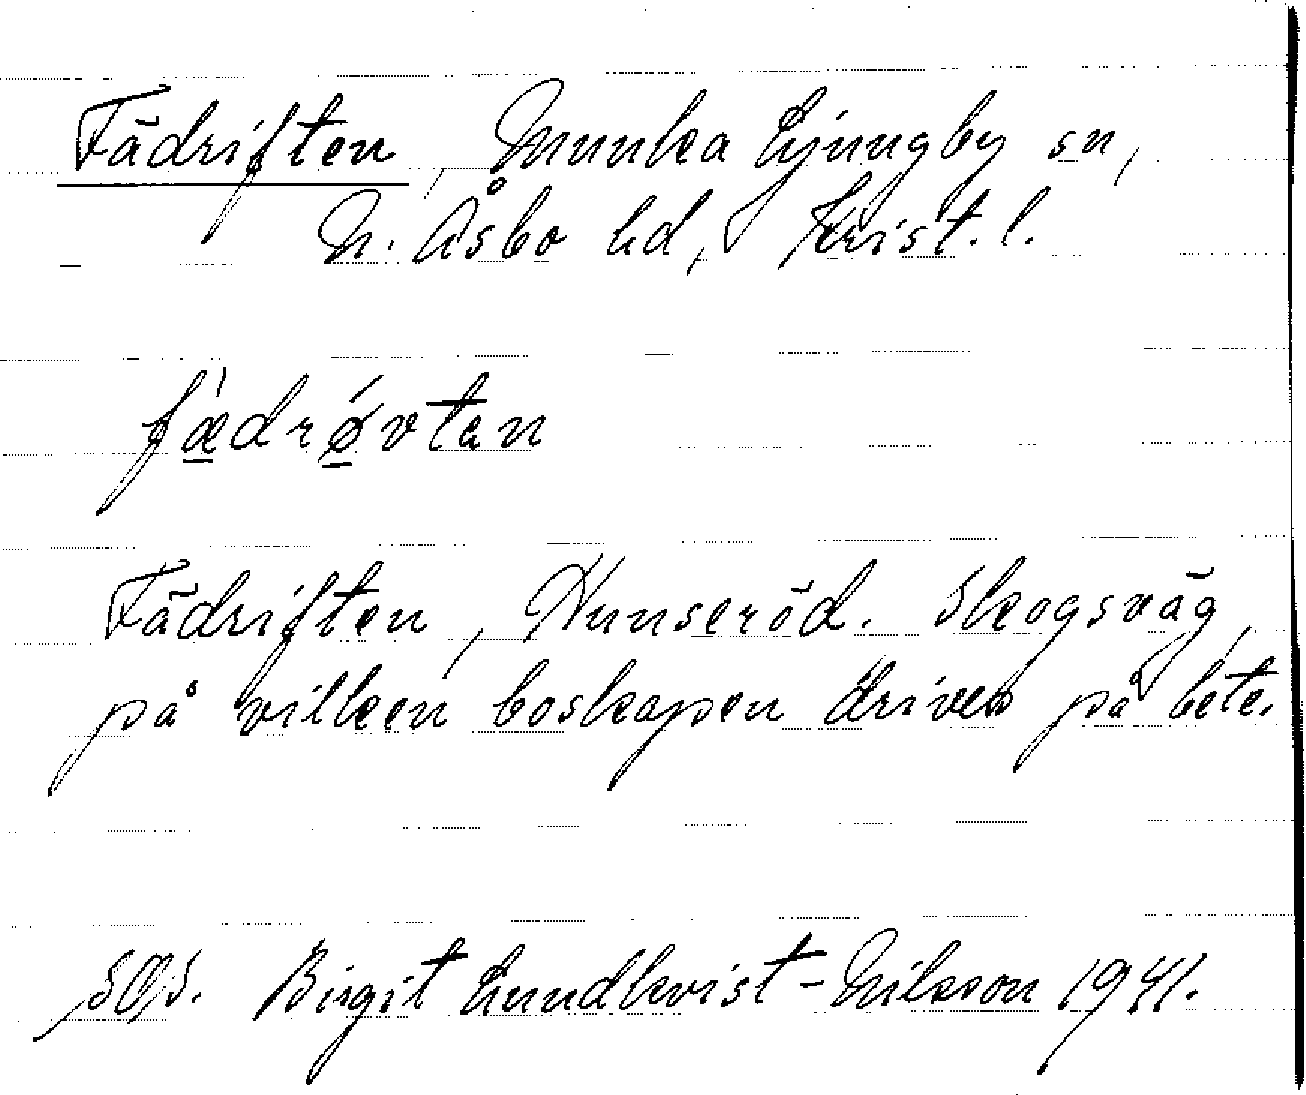 Fädriften, Munka Ljungby sn,
N. Åsbo hd, Krist. l.
fǽdrǿvtan
Fädriften, Hunseröd. Skogsväg,
på vilken boskapen drives på bete.
SOS. Birgit Lundkvist-Nilsson 1941.